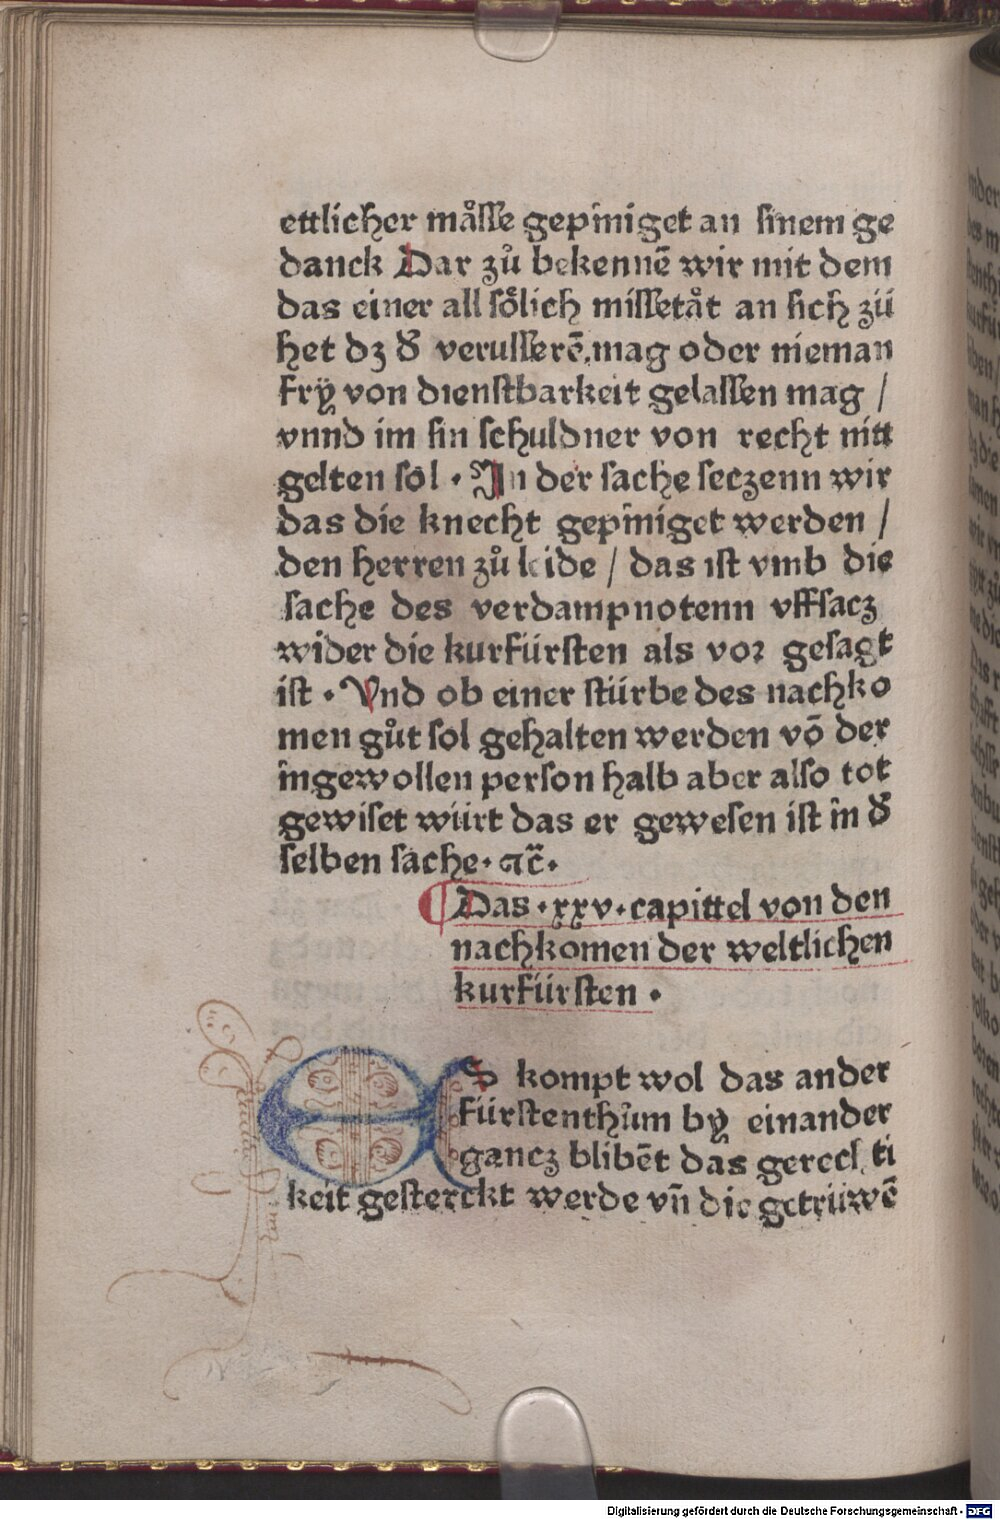 ettlicher må̊sse gepiniget an sinem ge
danck Dar zů bekennē wir mit dem
das einer all sölich missetåt an sich zü
het dz d̕ verusserē.mag oder nieman
frÿ von dienstbarkeit gelassen mag /
vnnd im sin schuldner von recht nitt
gelten sol · In der sache seczenn wir
das die knecht gepiniget werden /
den herren zů leide / das ist vmb die
sache des verdampnotenn vffsacz
wider die kurfürsten als vor gesagt
ist · Vnd ob einer stürbe des nachko
men gůt sol gehalten werden vō der
ingewollen person halb aber also tot
gewiset würt das er gewesen ist in d̕
selben sache · ꝛc̄ ·
Das · xxv · capittel von den
nachkomen der weltlichen
kurfürsten ·
ES kompt wol das ander
fürstenthům bÿ einander
gancz blibēt das gerechti
keit gesterckt werde vn̄ die getrüwē
Digitalisierung gefördert durch die Deutsche Forschungsgemeinschaft - DFG